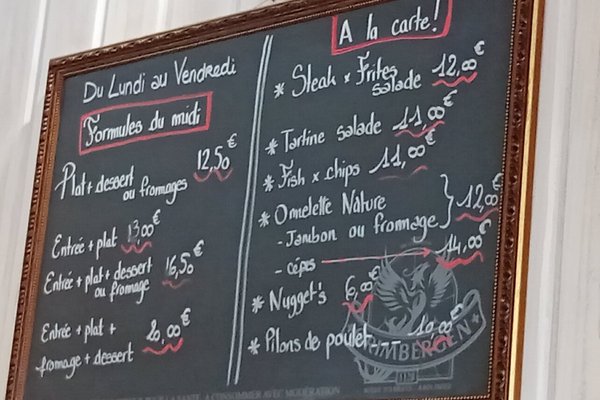 Du Lundi au Vendredi
Formules du midi
Plat + dessert 12,50€
ou fromages
Entrée + plat 13,00€
Entrée + plat + dessert 16,50€
ou fromage
Entrée + plat + 20,00€
fromage + dessert
A la carte!
* Steak x Frites 12,00€
salade
* Tartine salade 11,00€
* Fish x chips 11,00€
* Omelette Nature
- Jambon ou fromage } 12,00€
- cèpes 14,00€
* Nugget's 6,00€
* Pilons de poulet -- 10,00€
GRIMBERGEN
A CONSOMMER AVEC MODÉRATION